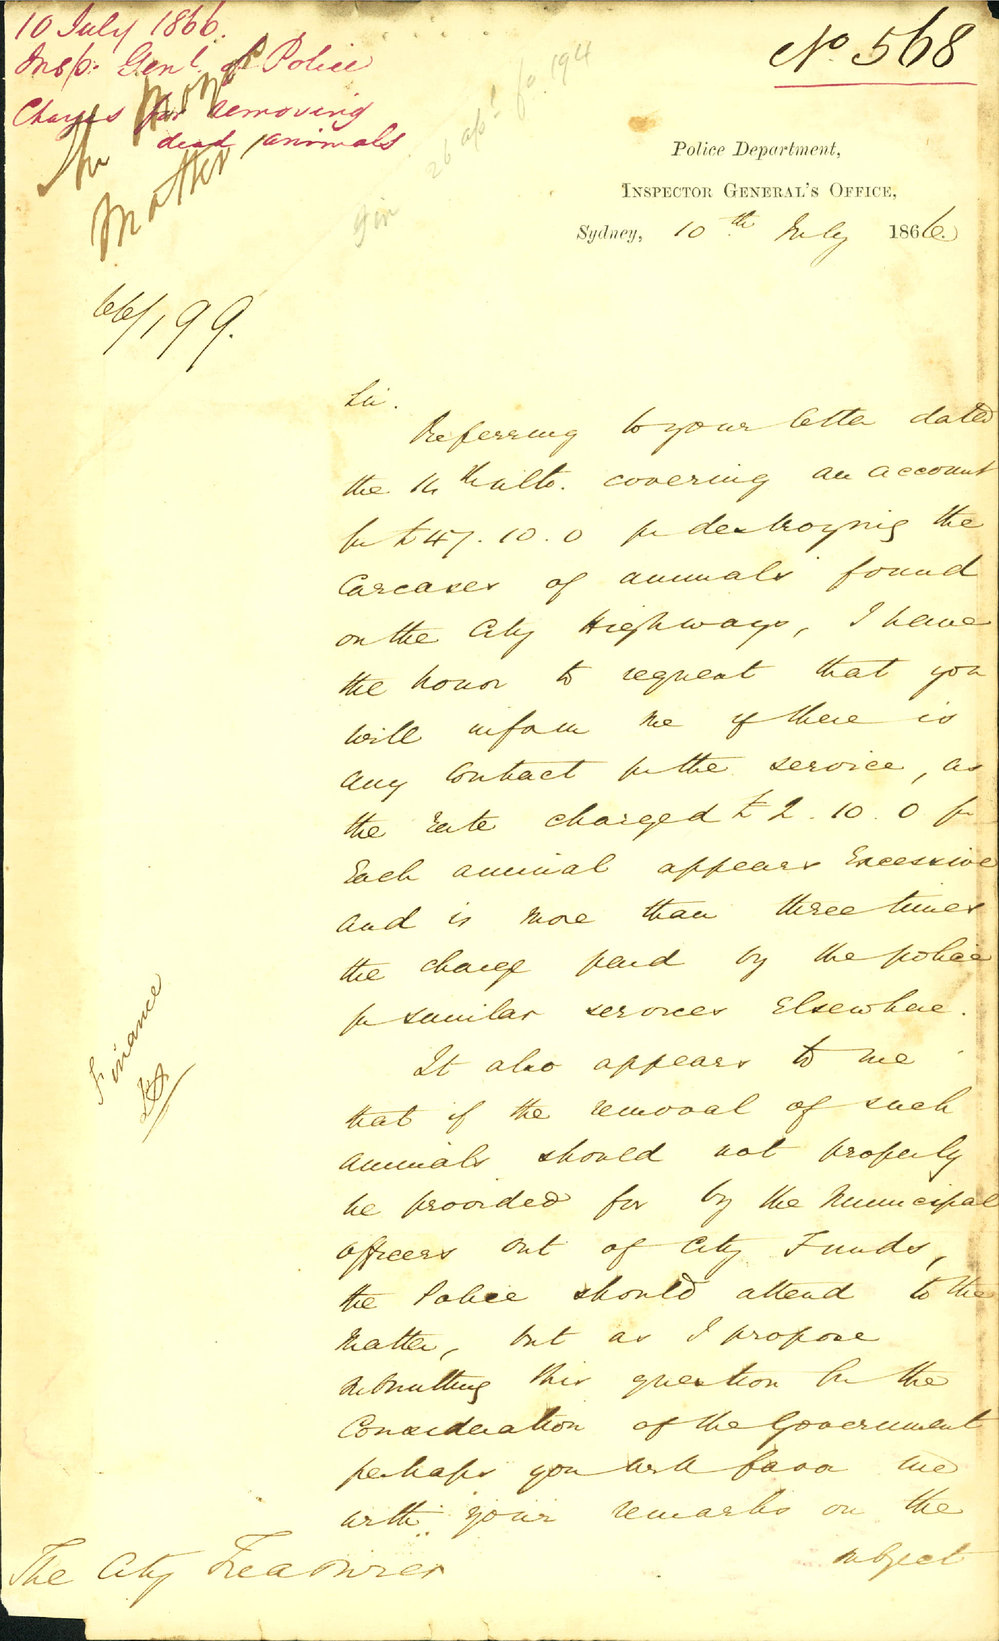 10 July 1866.
Insp: Genl. of Police
Charges for removing
dead animals
No. 568
Police Department,
Inspector General's Office,
Sydney, 10th July 1866.
Matter
66/199.
Sir.
Referring to your letter dated
the 14th ulto. covering an account
for £47.10.0 for destroying the
Carcases of animals found
on the City Highways, I have
the honor to request that you
will inform me if there is
any Contract for the service, as
the rate charged £2.10.0 for
Each animal appears Excessive
and is more than three times
the charge paid by the police
for similar services Elsewhere.
It also appears to me
that if the removal of such
animals should not properly
be provided for by the Municipal
Officers out of City Funds,
the Police should attend to the
matter, but as I propose
submitting this question for the
Consideration of the Government
perhaps you will favor me
with your remarks on the
subject
Finance
The City Treasurer